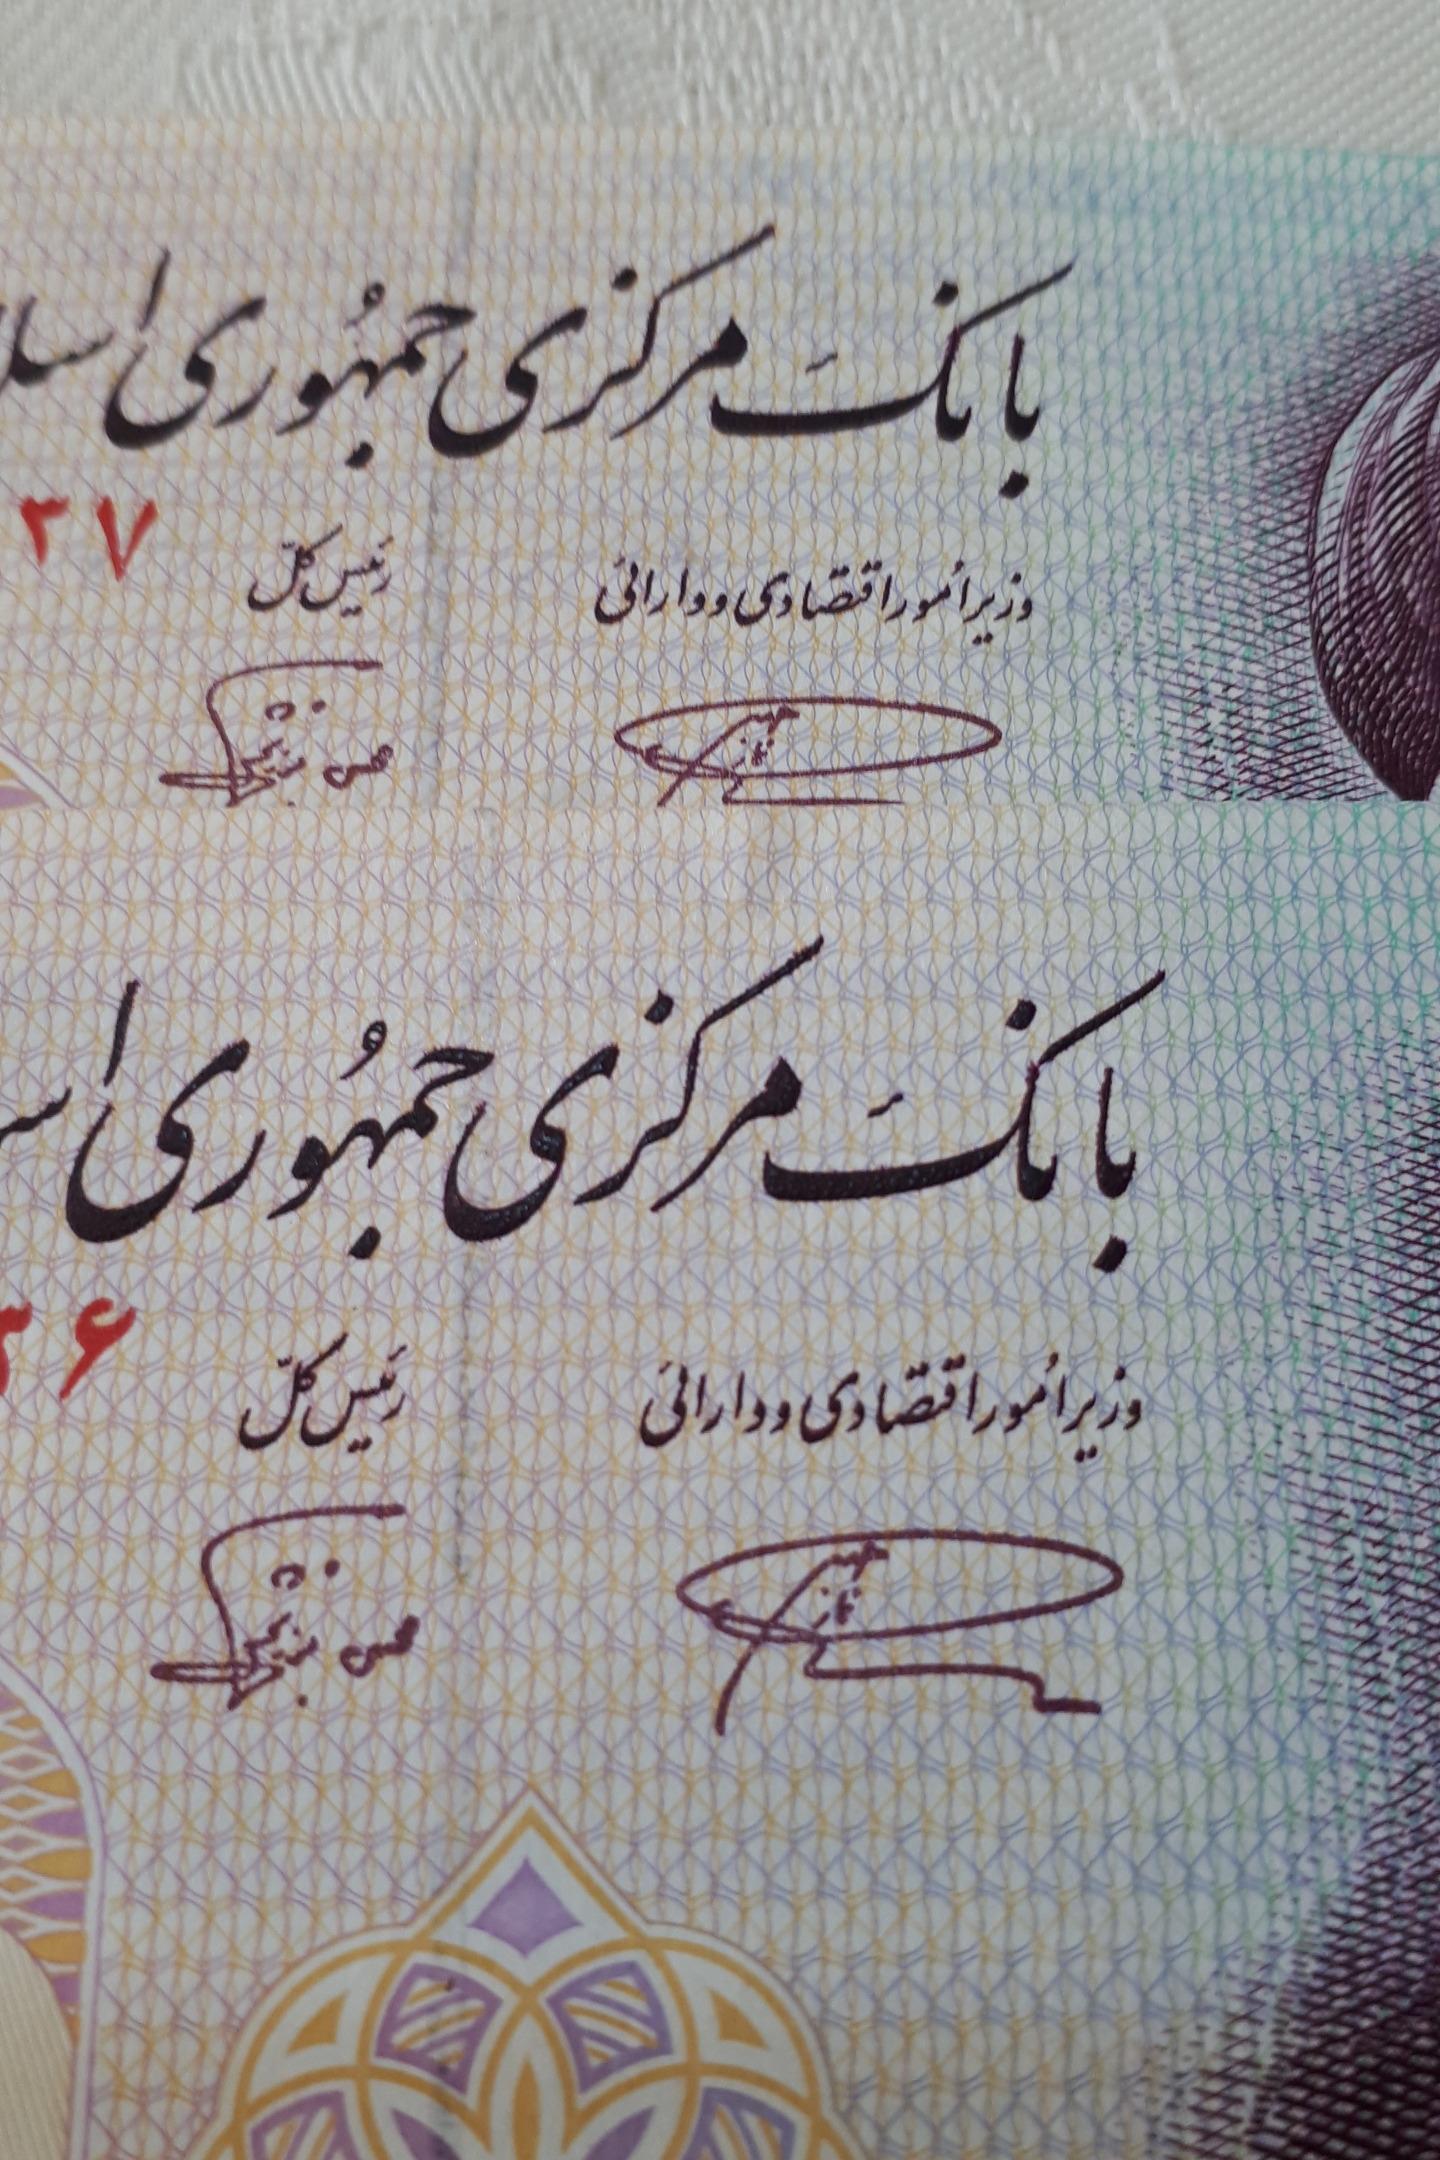 بانک مرکزی جمهوری اسلا
۲۷
وزیر امور اقتصادی و دارائی
رئیس کل
بانک مرکزی جمهوری اس
۳۶
وزیر امور اقتصادی و دارائی
رئیس کل